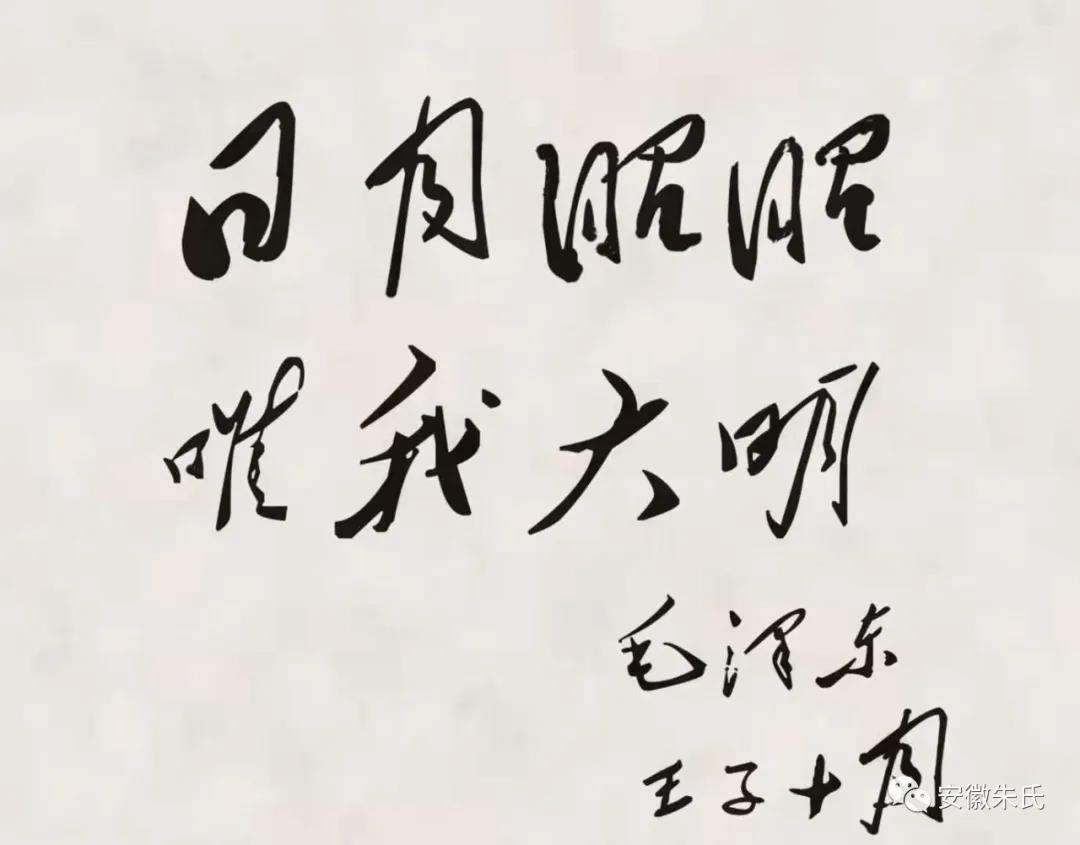 日月昭昭
唯我大明
毛泽东
王子十月
安徽朱氏